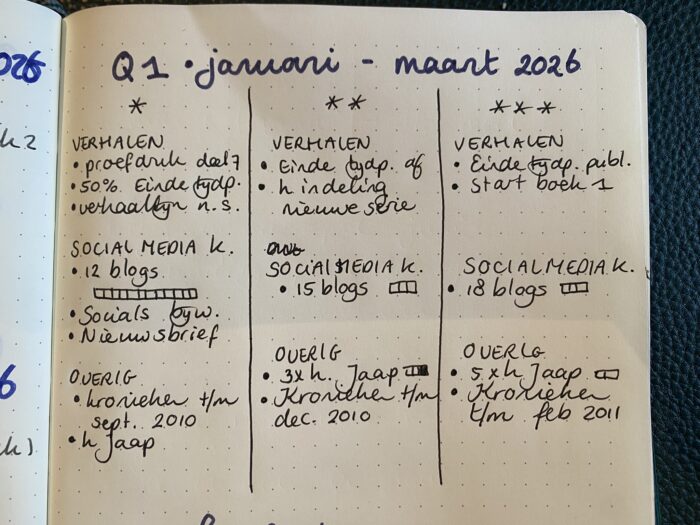 026
Q1 • januari - maart 2026
*
VERHALEN
• proefdruk deel 7
• 50% Einde tijdp.
• verhaallijn n.s.
SOCIAL MEDIA K.
• 12 blogs
• Socials bijw.
• Nieuwsbrief
OVERIG
• kronieken t/m
sept. 2010
• h Jaap
**
VERHALEN
• Einde tijdp. af
• h indeling
nieuwe serie
SOCIAL MEDIA K.
• 15 blogs
OVERIG
• 3x h. Jaap
• Kronieken t/m
dec. 2010
***
VERHALEN
• Einde tijdp. publ.
• Start boek 1
SOCIAL MEDIA K.
• 18 blogs
OVERIG
• 5x h Jaap
• Kronieken
t/m feb 2011